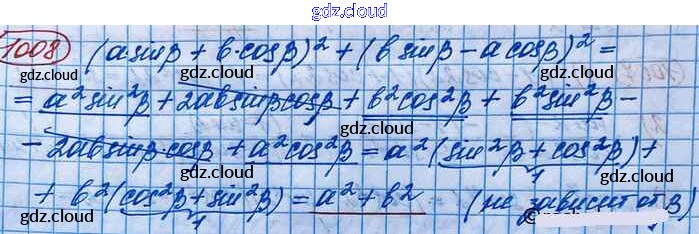 gdz.cloud
1008 (a·sinβ + b·cosβ)² + (b sinβ - a cosβ)² =
gdz.cloud gdz.cloud gdz.cloud
= a²sin²β + 2ab sinβ cosβ + b²cos²β + b²sin²β -
gdz.cloud
- 2ab sinβ·cosβ + a²cos²β = a²(sin²β + cos²β) +
gdz.cloud gdz.cloud
1
+ b²(cos²β + sin²β) = a² + b² (не зависит от β)
1
gdz.cloud gdz.cloud